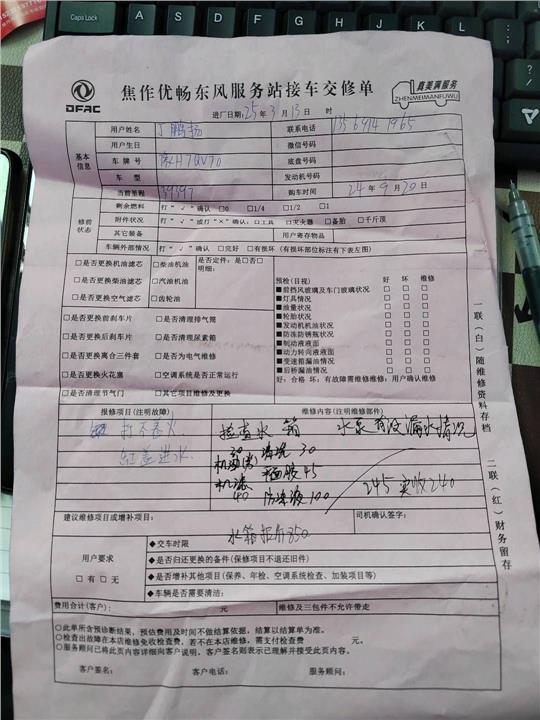 Caps Lock
DFAC
焦作优畅东风服务站接车交修单
真美满服务
ZHENMEIMANFUWU
进厂日期:25年3月13日 时
基本信息
用户姓名 丁鹏扬 联系电话
用户生日 微信号码
车牌号 底盘号码
车型 发动机号码
当前里程 39397 购车时间 24年9月20日
修前状态
剩余燃料 打“√”确认 □0 □1/4 □1/2 □1
附件状况 打“√”或打“×”确认:□工具 □灭火器 □备胎 □千斤顶
其它装备 用户寄存物品
车辆外部情况 打“√”确认 □完好 □有很坏(有很坏部位标注有下表左图)
□是否更换机油滤芯 □柴油机油
□是否更换柴油滤芯 □汽油机油
□是否更换空气滤芯 □齿轮油
是否定件:是□否□
明细:
□是否更换前刹车片 □是否清理排气筒
□是否更换后刹车片 □是否清理尿素箱
□是否更换离合三件套 □是否为电气维修
□是否更换火花塞 □空调系统是否正常运行
□是否清理节气门 □其它项目维修及更换
预检(目视) 好 坏 维修
■前挡风玻璃及车门玻璃状况 □ □ □
■灯具情况 □ □ □
■油量状况 □ □ □
■轮胎状况 □ □ □
■发动机机油状况 □ □ □
■防冻防锈瓶状况 □ □ □
■制动液液面 □ □ □
■动力转向液液面 □ □ □
■变速箱漏油情况 □ □ □
■后桥漏油情况 □ □ □
好:合格 坏:有故障需维修维修:用户确认维修
报修项目(注明故障) 维修内容(注明维修部件)
打不着火 检查水箱 水泵有没漏水情况
缸盖进水 清洗30
45
40 防冻液100 245 实收240
建议维修项目或增补项目: 司机确认签字:
水箱报价850
用户要求
□有□无
◆交车时限
◆是否归还更换的备件(保修项目不退还旧件)
◆是否增补其他项目(保养、年检、空调系统检查、加装项目等)
◆车辆是否需要清洁:
费用合计(客户): 元 维修及三包件不允许带走
○此单所含预诊断结果,预估费用及时间不做结算依据,结算以结算单为准。
○检查出故障在本店维修免收检查费,若不在本店维修,需支付检查费 元。
○服务顾问已将此页内容详细向客户说明,客户签名则表示已理解并接受此页内容。
客户签名: 客户电话: 服务顾问:
一联(白)随维修资料存档
二联(红)财务留存